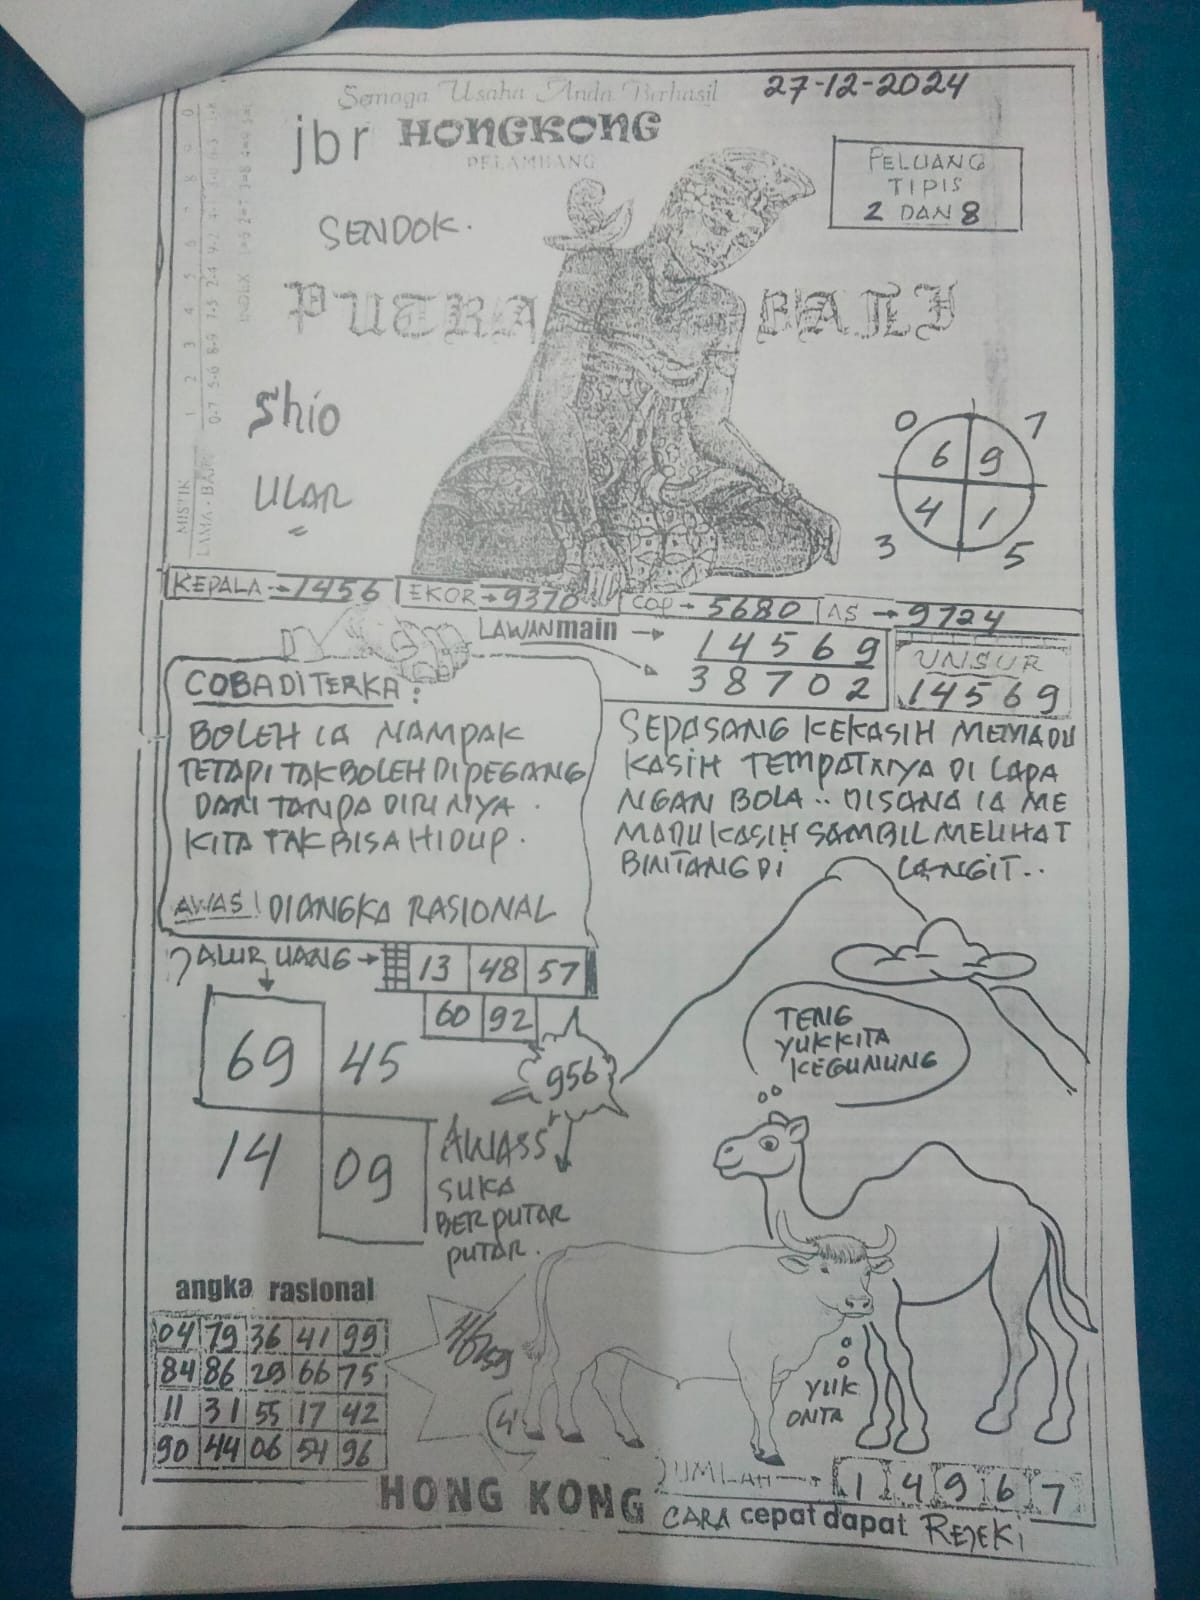 Semoga Usaha Anda Berhasil
27-12-2024
jbr HONGKONG
PELAMBANG
PELUANG
TIPIS
2 DAN 8
SENDOK.
PUTRA BALI
Shio
ULAR
MISTIK
LAMA - BARU
INDEX
0 7
6 9
4 1
3 5
KEPALA → 1456
EKOR → 9370
COP → 5680
AS → 9724
LAWAN main → 14569
38702
UNSUR
14569
COBA DITERKA :
BOLEH IA NAMPAK
TETAPI TAK BOLEH DIPEGANG
DAN TANPA DIRINYA .
KITA TAK BISA HIDUP .
AWAS ! DIANGKA RASIONAL
SEPASANG KEKASIH MEMADU
KASIH TEMPATNYA DI LAPA
NGAN BOLA .. DISANA IA ME
MADU KASIH SAMBIL MELIHAT
BINTANG DI LANGIT..
ALUR UANG → 13 48 57
60 92
69 45
14 09
956
AWASS
SUKA
BERPUTAR
PUTAR .
TENG
YUK KITA
KEGUNUNG
YUK
ONTA
angka rasional
04 79 36 41 99
84 86 29 66 75
11 31 55 17 42
90 44 06 54 96
4
JUMLAH → 1 4 9 6 7
HONG KONG
CARA cepat dapat REJEKI